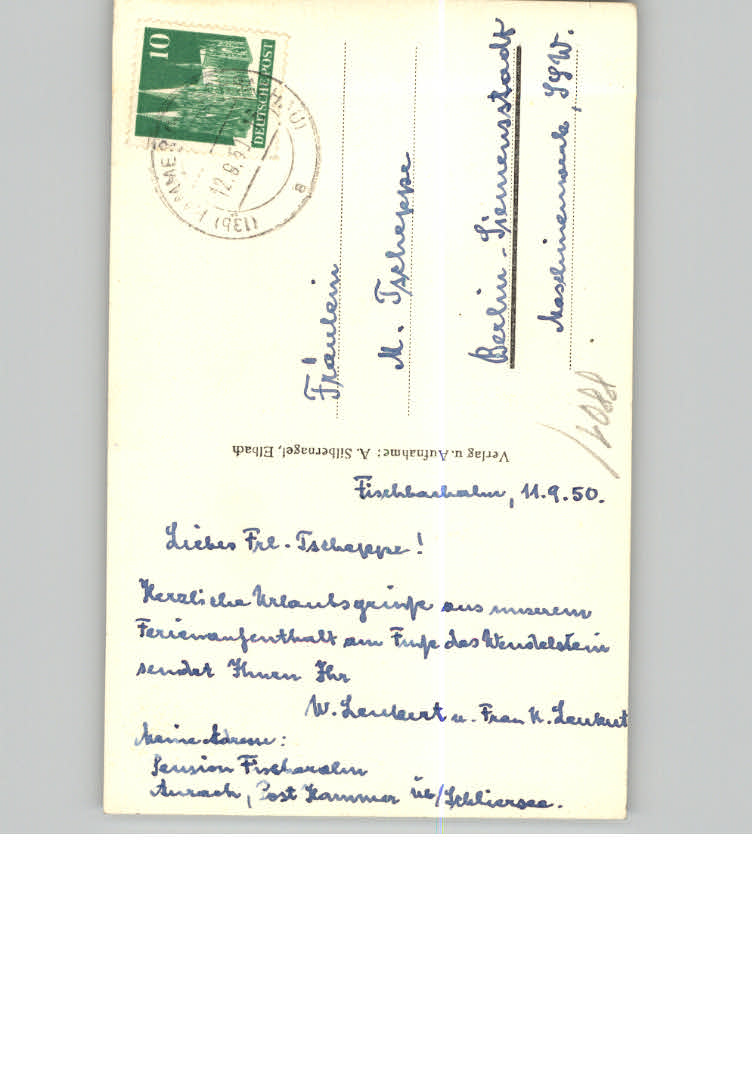 10
DEUTSCHE POST
(13b) HAMMER
12.9.50
a
Fräulein
M. Tscheppe
Berlin-Siemensstadt
Maschinenwerk, SSW.
Verlag u. Aufnahme: A. Silbernagel, Elbach
Fischbachalm, 11.9.50.
Liebes Frl. Tscheppe!
Herzliche Urlaubsgrüße aus unserem
Ferienaufenthalt am Fuße des Wendelstein
sendet Ihnen Ihr
W. u. Frau K.
Meine Adresse:
Pension Fischeralm
Aurach, Post Hammer üb/Schliersee.